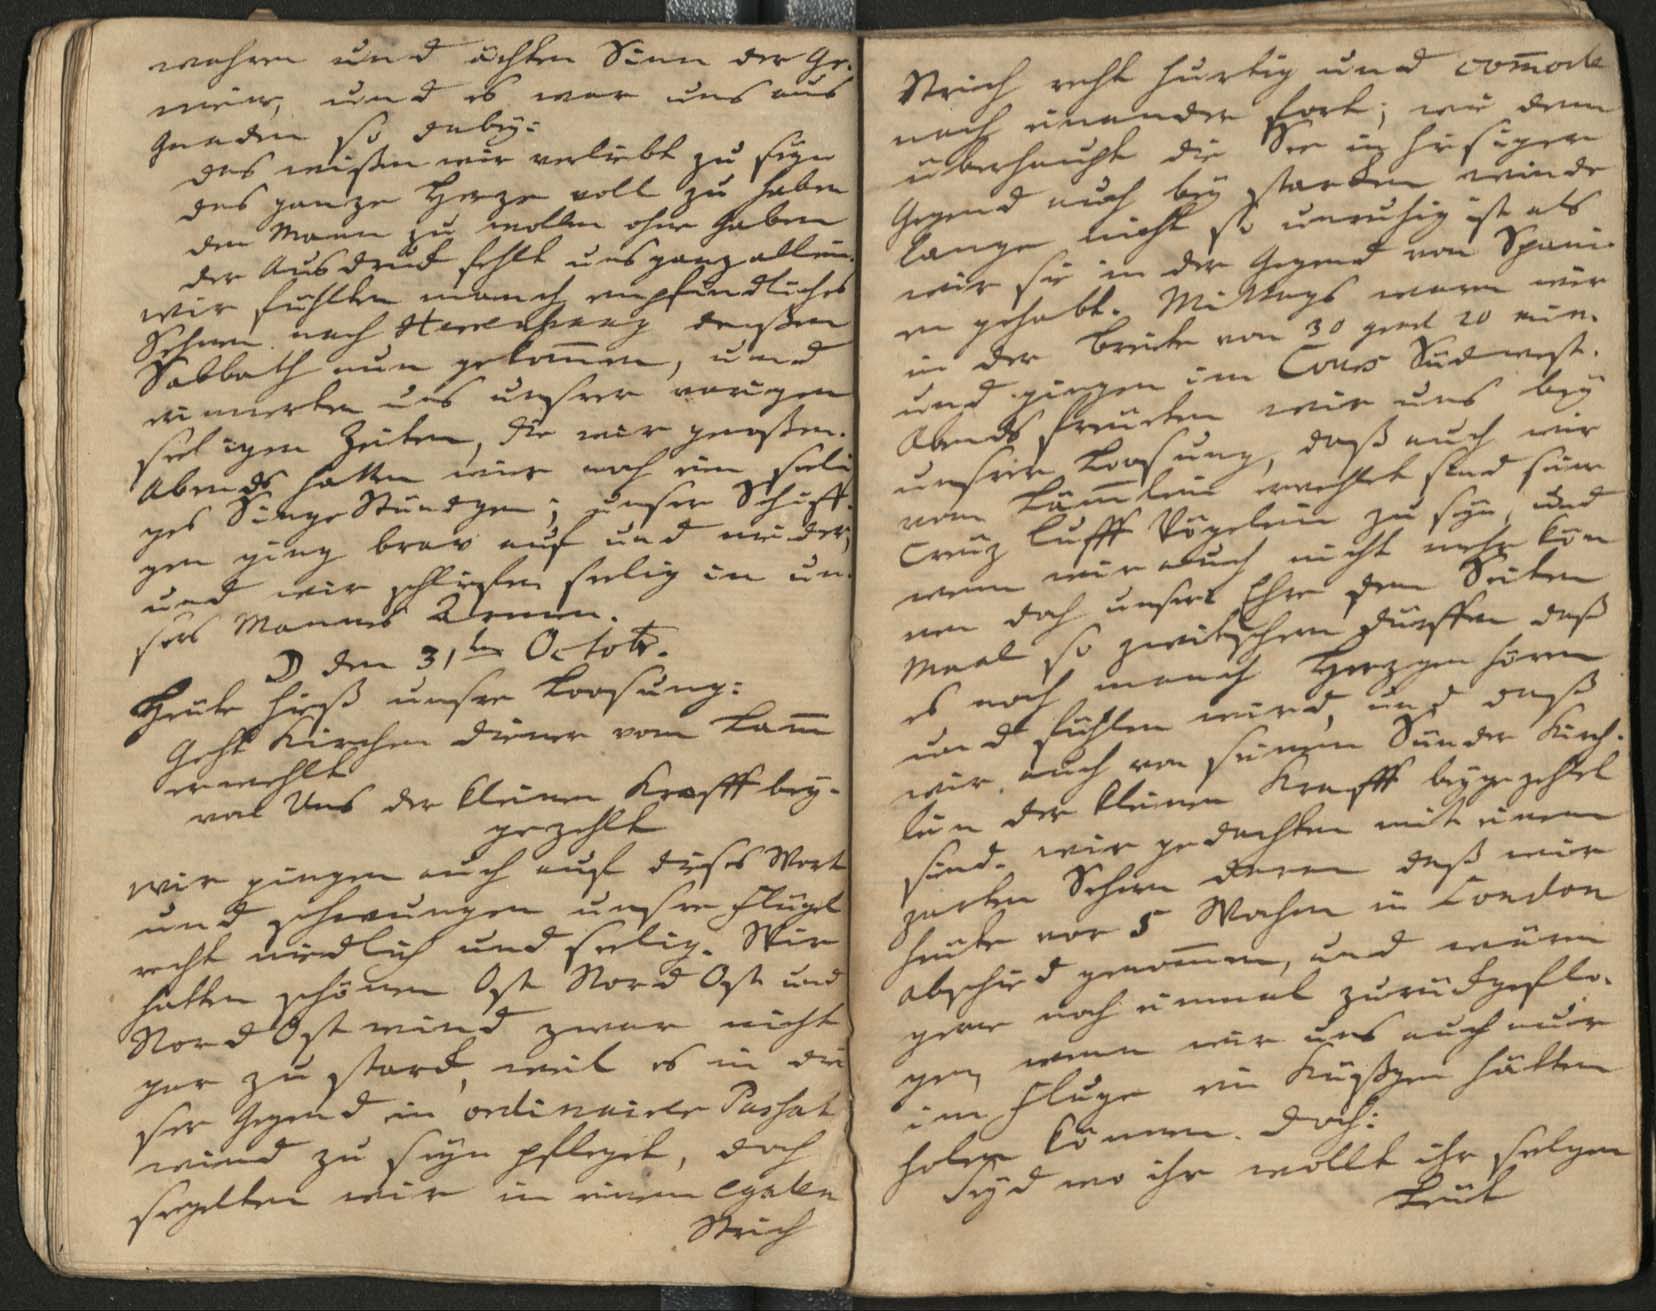 wahren und ächten Sinn der Ge-
meine, und es war uns aus
Gnaden so dabey:
das wißen wir verliebt zu seyn
das ganze Herze voll zu haben
den Mann zu wollen ohne Gaben
der Ausdruck fehlt uns ganz allein.
wir fühlten manch empfindliches
Sehnen nach Herrenhaag deßen
Sabbath nun gekom̅en, und
erinnerten uns unsrer vorigen
seeligen Zeiten, die wir genoßen.
Abends hatten wir noch ein seeli-
ges Singe Stündgen; unser Schiff-
gen ging brav auf und nieder,
und wir schliefen seelig in un-
sers Mannes Armen.
☽ den 31ten Octobr.
Heute hieß unsre Loosung:
Geht Kirchen diener vom Lam̅
erwehlt
von Uns der kleinen Krafft bey-
gezehlt
wir gingen auch auf dieses Wort
und schwungen unsre Flügel
recht niedlich und seelig. Wir
hatten schönen Ost Nord Ost und
Nord Ost wind zwar nicht
gar zu starck, weil es in die
ser Gegend ein ordinairer Passat
wind zu seyn pfleget, doch
segelten wir in einem egalen
Strich
Strich recht hurtig und com̅ode
nach einander fort; wie denn
überhaupt die See in hiesiger
Gegend auch bey starken winde
lange nicht so unruhig ist als
wir sie in der Gegend von Spani-
en gehabt. Mittags waren wir
in der Breite von 30 grad 20 min.
und gingen im Cours Südwest.
Abends freueten wir uns bey
unsrer Loosung, daß auch wir
vom Läm̅lein erwehlet sind seine
Creuz Lufft Vögelein zu seyn, und
wenn wir auch nicht mehr kön
nen doch unsre Ehre dem Seiten
Maal so zwitschern dürffen daß
es noch manch Herzgen hören
und fühlen wird, und daß
wir auch von seinem Sünder Kirch-
lein der kleinen Krafft beygezehlet
sind. wir gedachten mit einem
zarten Sehnen daran daß wir
heute vor 5 Wochen in London
abschied genom̅en, und wären
gerne noch einmal zurückgeflo-
gen, wenn wir uns auch nur
im Fluge ein Küßgen hätten
holen können. doch:
Seyd wo ihr wollt ihr selgen
Leut